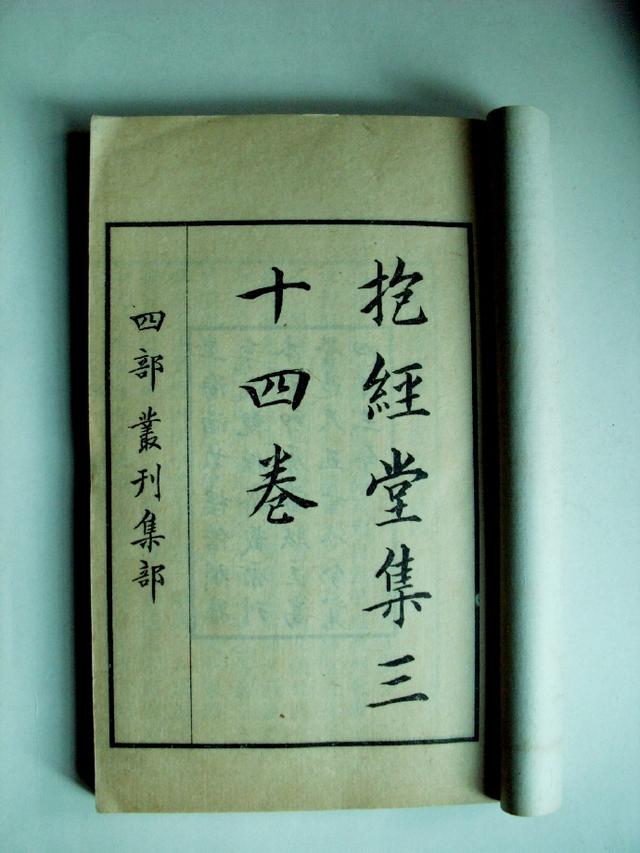 抱經堂集三
十四卷
四部叢刊集部